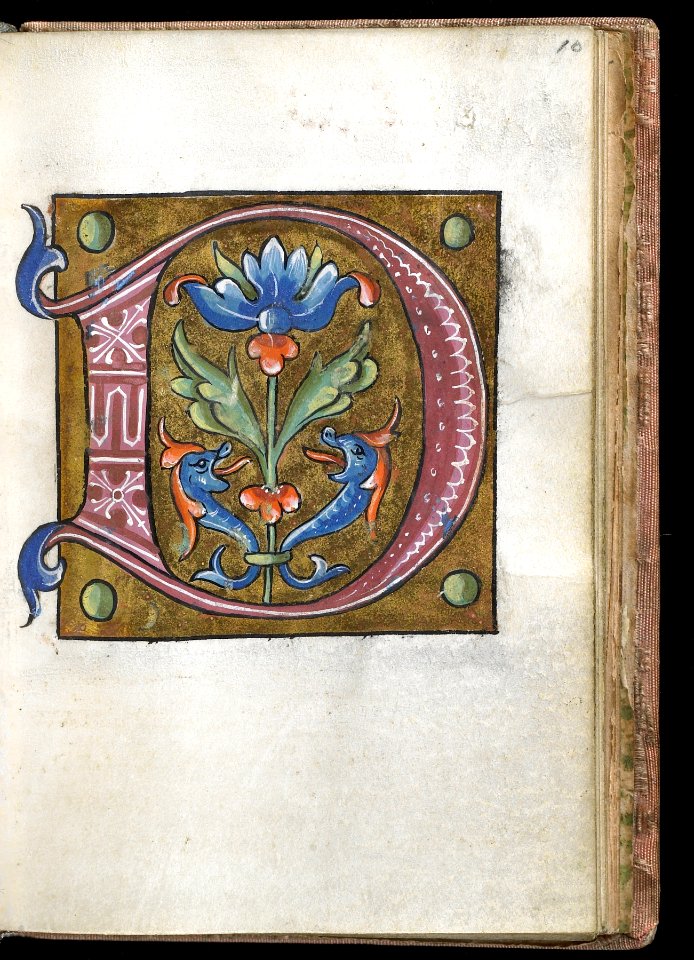 10
D